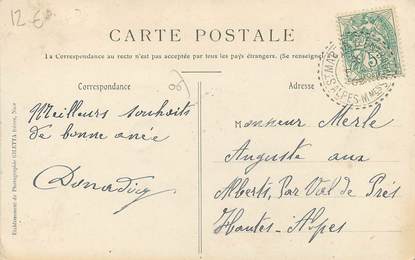 12 €
CARTE POSTALE
La Correspondance au recto n'est pas acceptée par tous les pays étrangers. (Se renseigner
Correspondance
Adresse
Meilleurs souhaits
de bonne anée
Donadieu
Monsieur Merle
Auguste aux
Alberts, Par Val de Prés
Hautes-Alpes
Etablissement de Photographie GILETTA frères, Nice
ALPES MMES
5c